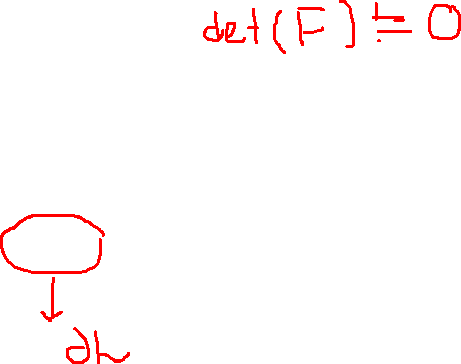 det(F) != 0
∂h